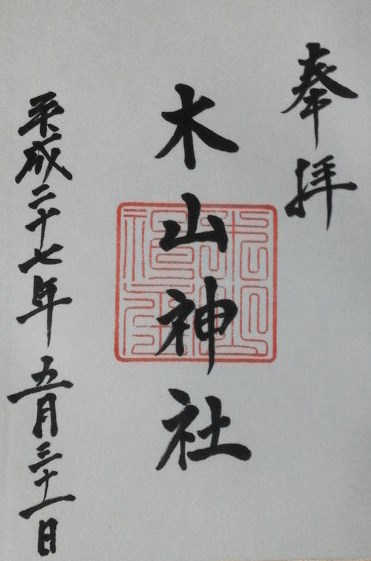 奉拝
木山神社
平成二十七年五月三十一日